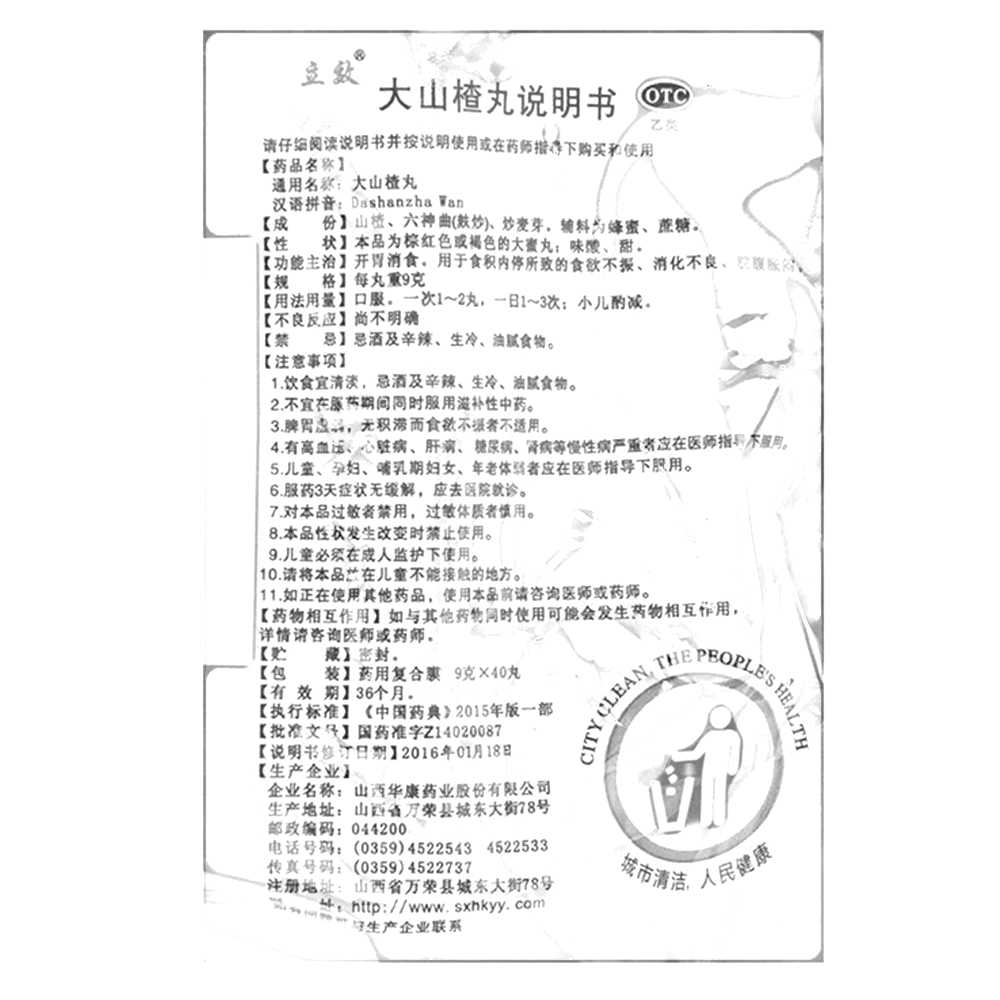 立效®
大山楂丸说明书
OTC
乙类
请仔细阅读说明书并按说明使用或在药师指导下购买和使用
【药品名称】
通用名称：大山楂丸
汉语拼音：Dashanzha Wan
【成 份】山楂、六神曲(麸炒)、炒麦芽。辅料为蜂蜜、蔗糖。
【性 状】本品为棕红色或褐色的大蜜丸；味酸、甜。
【功能主治】开胃消食。用于食积内停所致的食欲不振、消化不良、脘腹胀闷。
【规 格】每丸重9克
【用法用量】口服。一次1～2丸，一日1～3次；小儿酌减。
【不良反应】尚不明确
【禁 忌】忌酒及辛辣、生冷、油腻食物。
【注意事项】
1.饮食宜清淡，忌酒及辛辣、生冷、油腻食物。
2.不宜在服药期间同时服用滋补性中药。
3.脾胃虚弱，无积滞而食欲不振者不适用。
4.有高血压、心脏病、肝病、糖尿病、肾病等慢性病严重者应在医师指导下服用。
5.儿童、孕妇、哺乳期妇女、年老体弱者应在医师指导下服用。
6.服药3天症状无缓解，应去医院就诊。
7.对本品过敏者禁用，过敏体质者慎用。
8.本品性状发生改变时禁止使用。
9.儿童必须在成人监护下使用。
10.请将本品放在儿童不能接触的地方。
11.如正在使用其他药品，使用本品前请咨询医师或药师。
【药物相互作用】如与其他药物同时使用可能会发生药物相互作用，
详情请咨询医师或药师。
【贮 藏】密封。
【包 装】药用复合膜 9克×40丸
【有 效 期】36个月。
【执行标准】《中国药典》2015年版一部
【批准文号】国药准字Z14020087
【说明书修订日期】2016年01月18日
【生产企业】
企业名称：山西华康药业股份有限公司
生产地址：山西省万荣县城东大街78号
邮政编码：044200
电话号码：(0359)4522543 4522533
传真号码：(0359)4522737
注册地址：山西省万荣县城东大街78号
址：http://www.sxhkyy.com
与生产企业联系
CITY CLEAN, THE PEOPLE'S HEALTH
城市清洁,人民健康